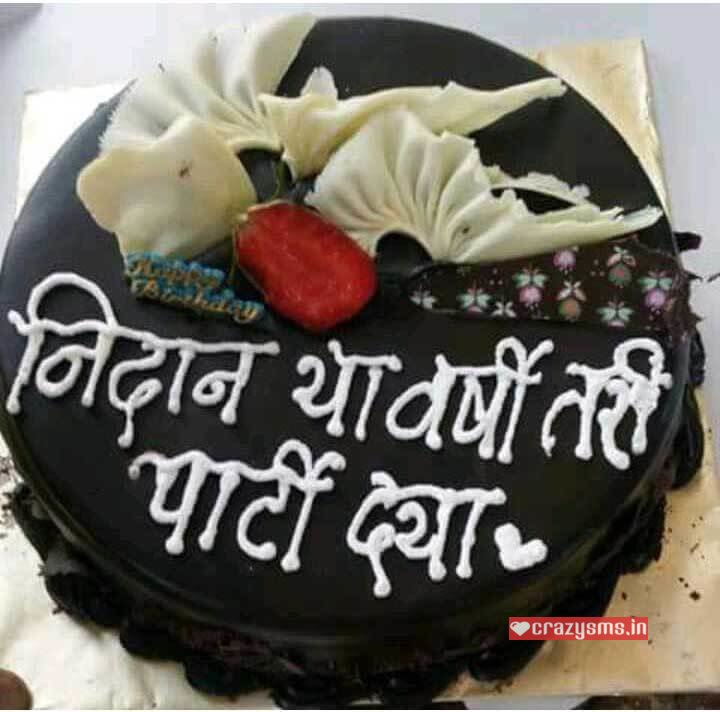 Happy
Birthday
निदान या वर्षी तरी
पार्टी दया
crazysms.in